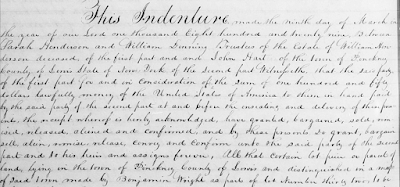 This Indenture, made the Ninth day of March in
the year of our Lord one thousand Eight hundred and twenty nine, Between
Sarah Henderson and William Dunning Trustees of the Estate of William Hen-
derson deceased, of the first part and John Hart of the town of Pinckney
County of Lewis State of New York of the Second part Witnesseth, that the said party
of the first part for and in Consideration of the Sum of one hundred and fifty
dollars lawfully money of the United States of America to them in hand paid
by the said party of the second part at and before the ensealing and delivery of these pre-
sents, the receipt whereof is hereby acknowledged, have granted, bargained, sold, remi-
sed, released, aliened and confirmed, and by these presents Do grant, bargain
sell, alien, remise, release, Convey and Confirm unto the said party of the second
part and to his heirs and assigns forever, All that Certain lot piece or parcel of
land, lying in the town of Pinckney County of Lewis and distinguished in a map of
said town made by Benjamin Wright as part of Lot Number thirty two, to be